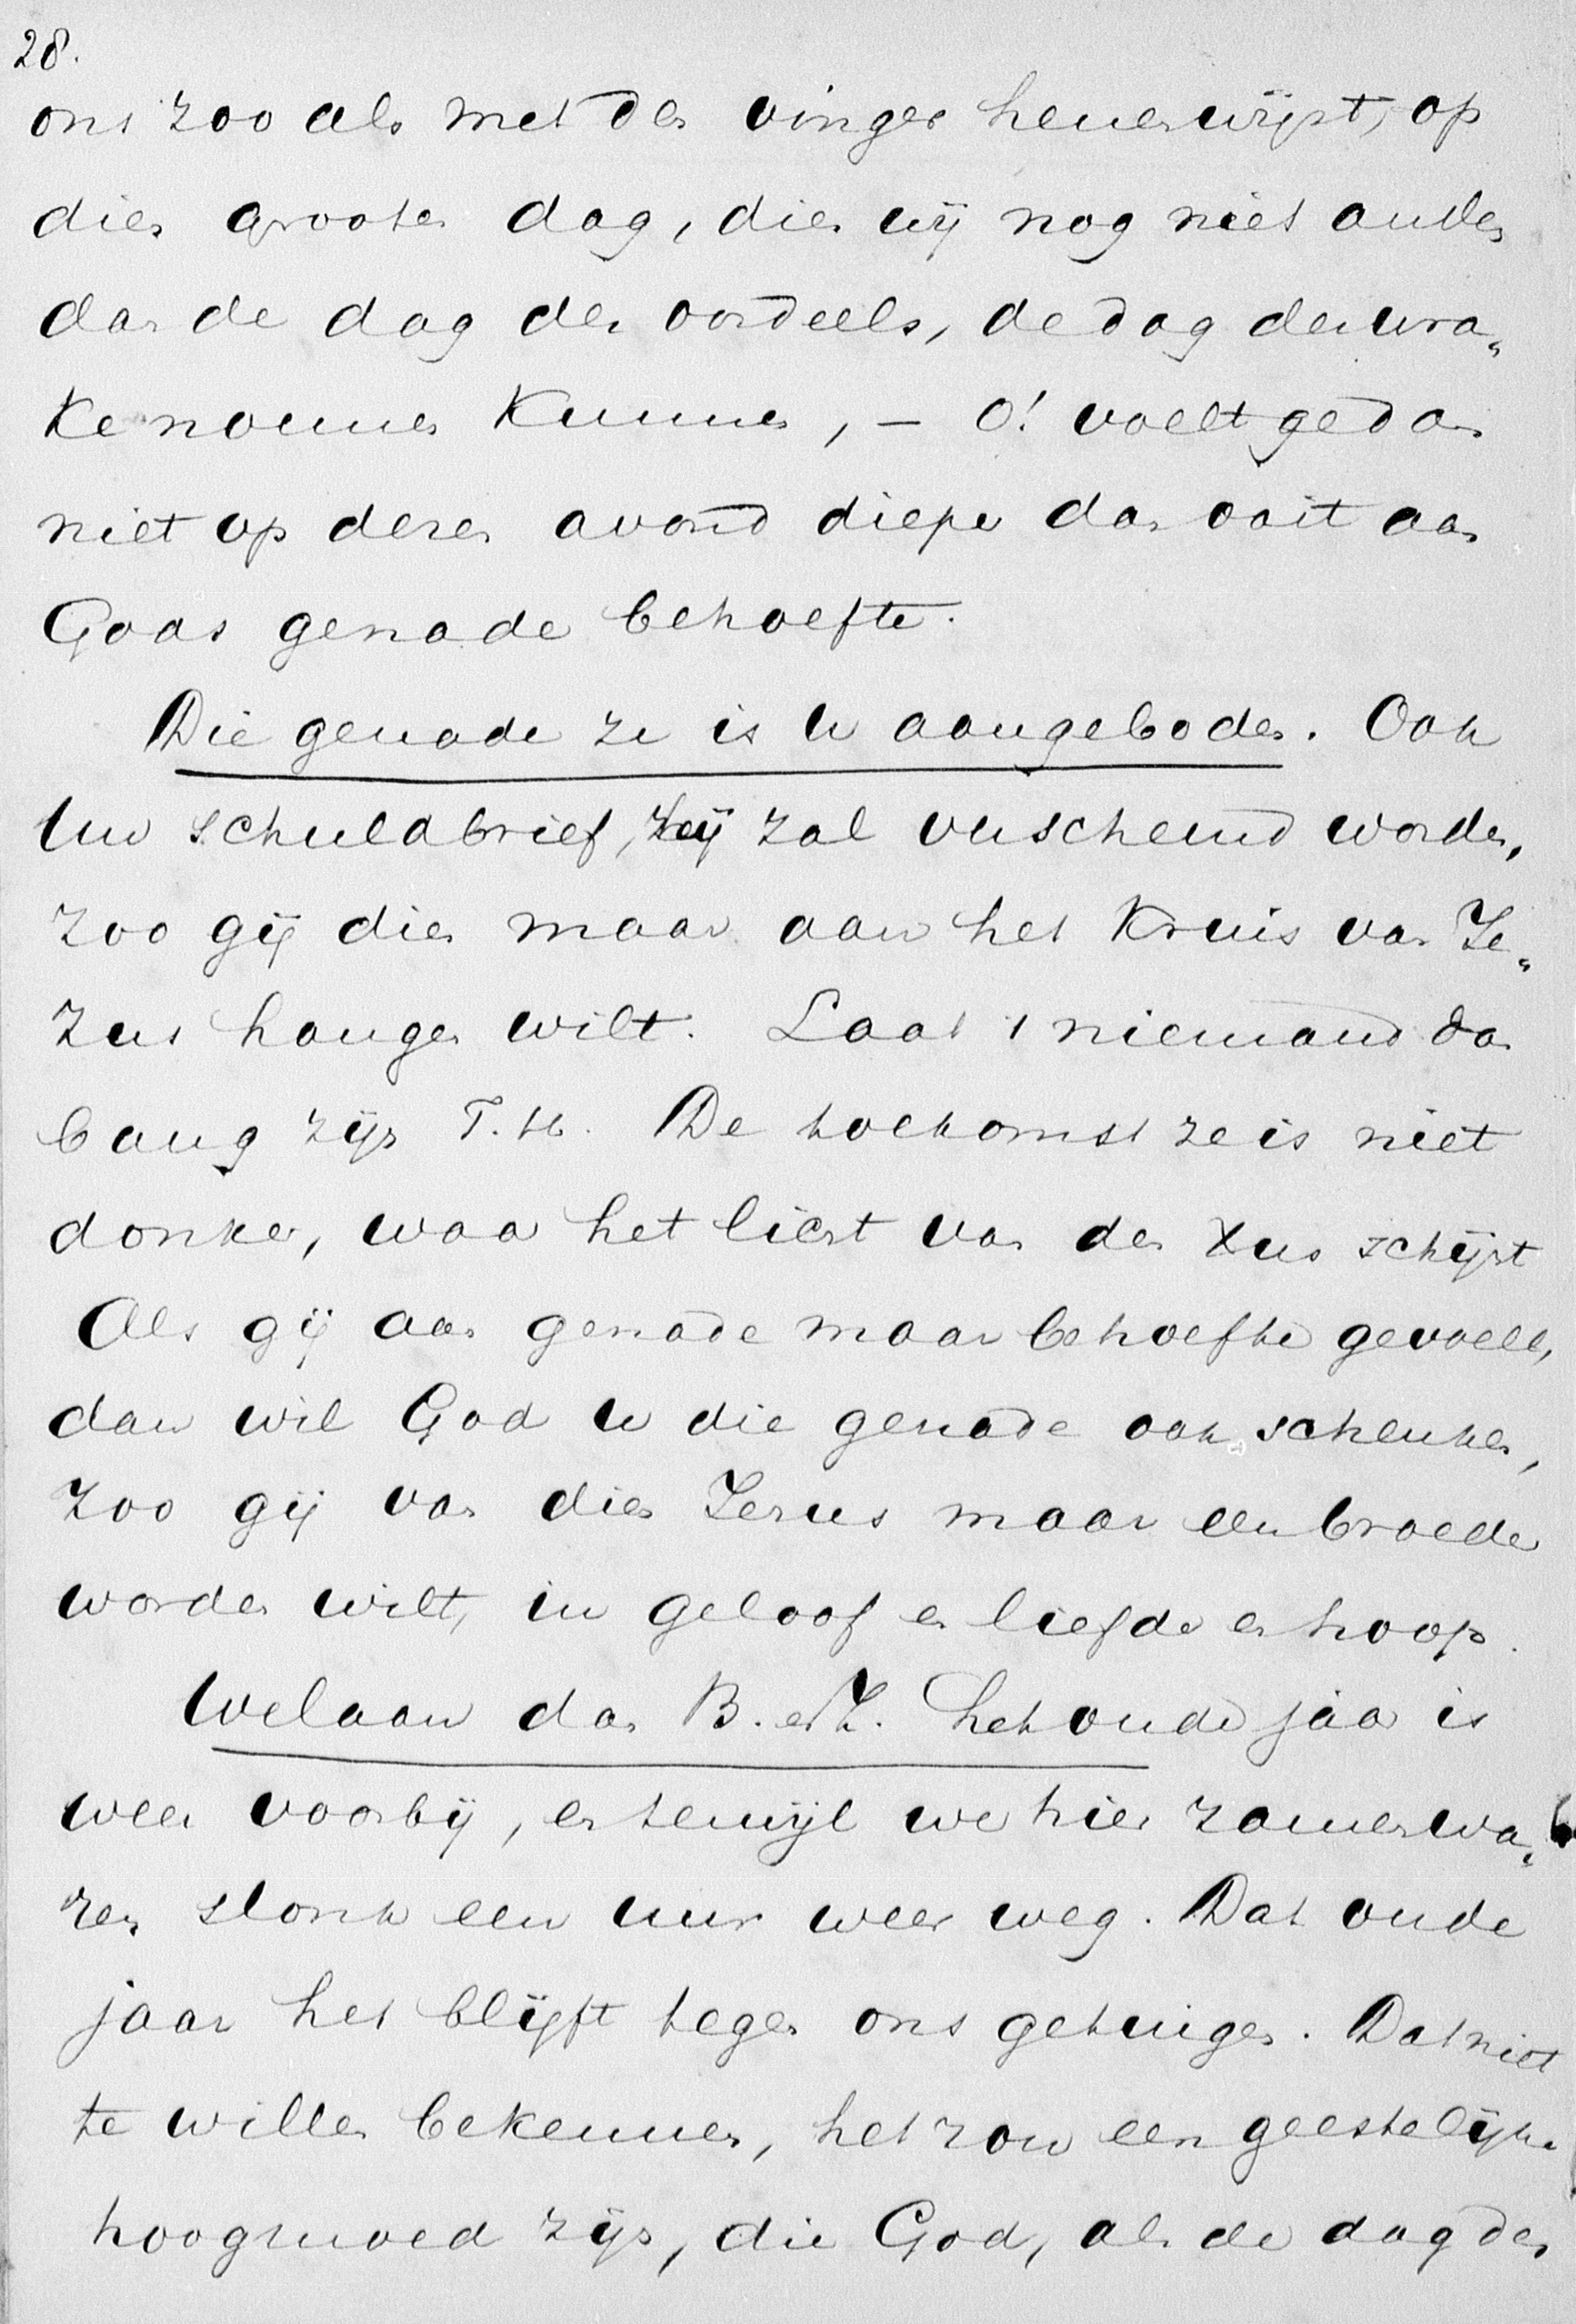 28.
ons zoo als met den vinger henenwijst, op
dien grooten dag, dien wij nog niet anders
dan de dag des oordeels, de dag der wra„
ke noemen kunnen, — O! voelt ge dan
niet op dezen avond dieper dan ooit aan
Gods genade behoefte.
Die genade ze is u aangeboden. Ook
Uw schuldbrief, hij zal verscheurd worden,
zoo gij dien maar aan het Kruis van Je„
zus hangen wilt. Laat niemand dan
bang zijn T. H. De toekomst ze is niet
donker, waar het licht van den Xus schijnt
Als gij aan genade maar behoefte gevoelt,
dan wil God u die genade ook schenken,
zoo gij van dien Jezus maar een broeder
worden wilt, in geloof en liefde en hoop.
Welaan dan B. en Z. het oude jaar is
weer voorbij, en terwijl we hier zamen wa„
ren slonk een uur weer weg. Dat oude
jaar het blijft tegen ons getuigen. Dat niet
te willen bekennen, het zou een geestelijke
hoogmoed zijn, die God, als de dag des